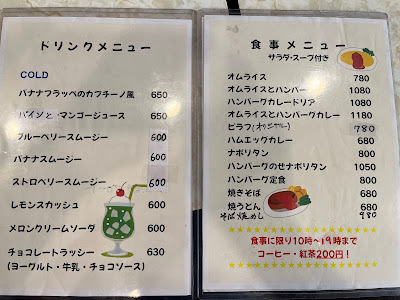 ドリンクメニュー
COLD
バナナフラッペのカプチーノ風 650
パインとマンゴージュース 650
ブルーベリースムージー 600
バナナスムージー 600
ストロベリースムージー 600
レモンスカッシュ 600
メロンクリームソーダ 600
チョコレートラッシー 630
(ヨーグルト・牛乳・チョコソース)
食事メニュー
サラダ・スープ付き
オムライス 780
オムライスとハンバーグ 1080
ハンバーグカレードリア 1080
オムライスとハンバーグカレー 1180
ピラフ(オリジナル) 780
ハムエッグカレー 680
ナポリタン 800
ハンバーグのせナポリタン 1050
ハンバーグ定食 800
焼きそば 680
焼うどん 680
そば焼めし 980
食事に限り10時~19時まで
コーヒー・紅茶200円!